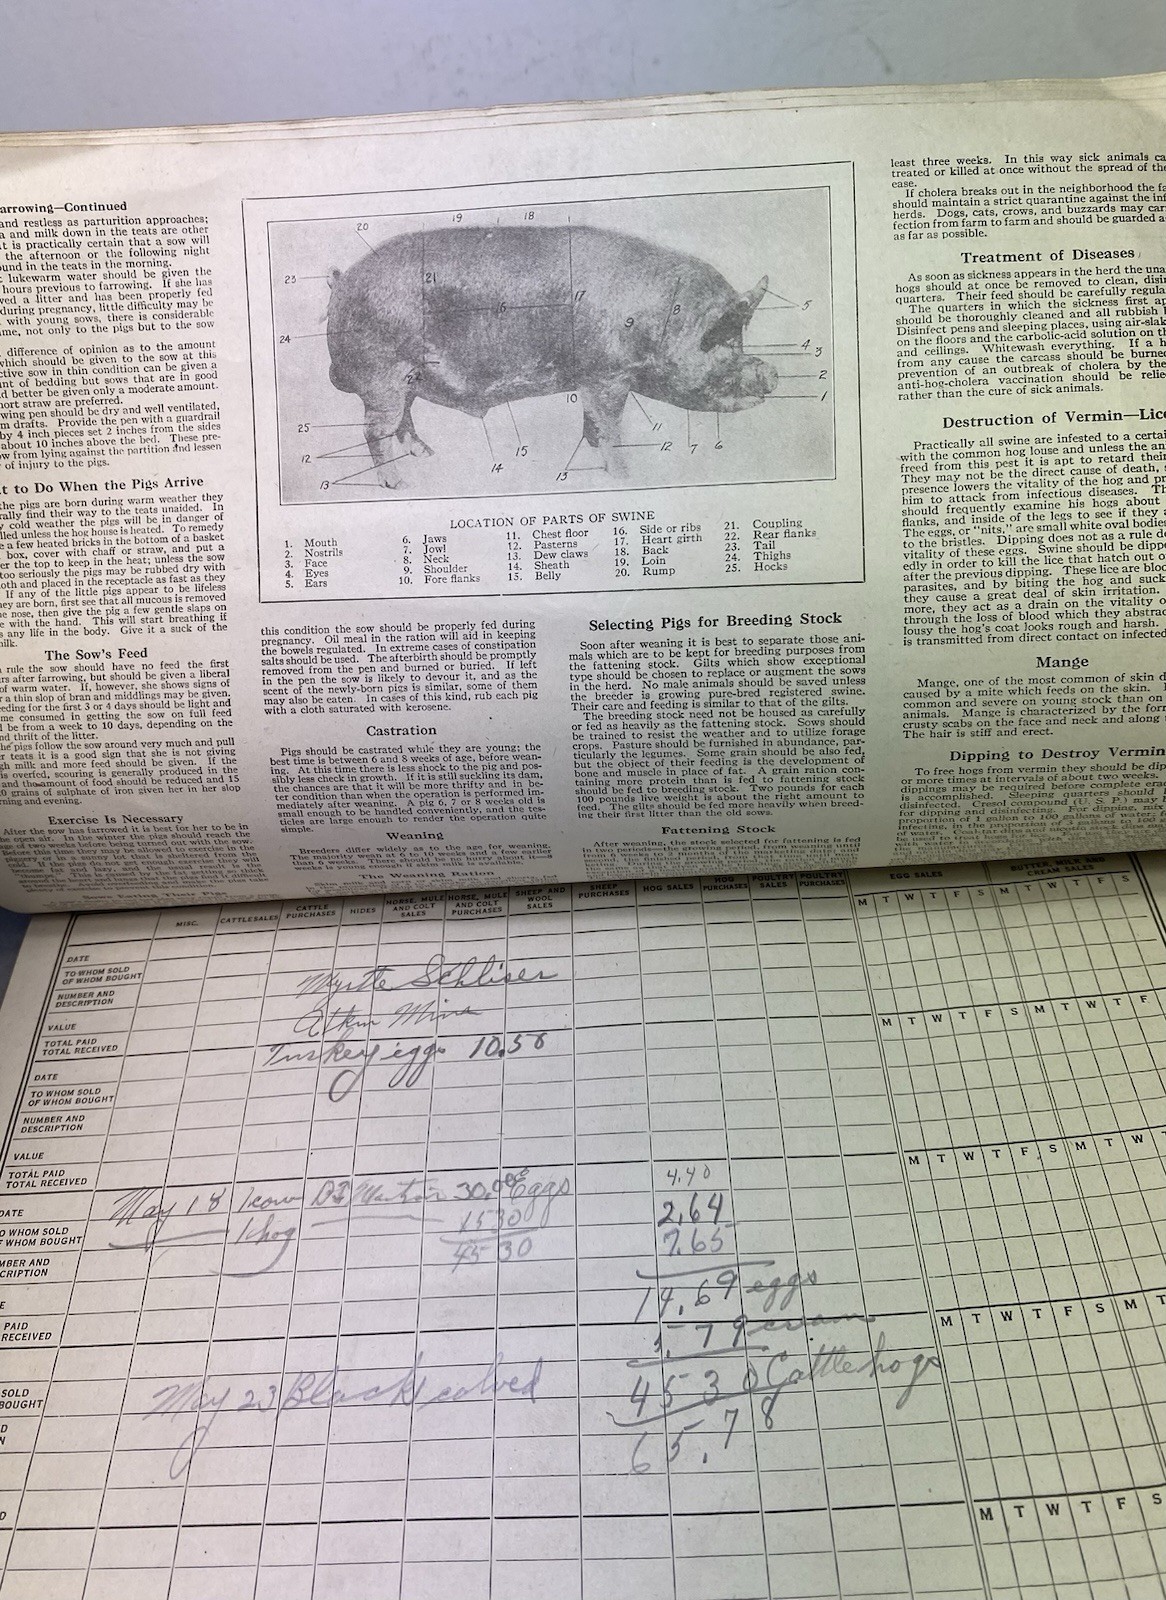 arrowing—Continued
and restless as parturition approaches;
and milk down in the teats are other
t is practically certain that a sow will
the afternoon or the following night
ound in the teats in the morning.
lukewarm water should be given the
hours previous to farrowing. If she has
ved a litter and has been properly fed
during pregnancy, little difficulty may be
with young sows, there is considerable
me, not only to the pigs but to the sow
difference of opinion as to the amount
which should be given to the sow at this
ctive sow in thin condition can be given a
nt of bedding but sows that are in good
d better be given only a moderate amount.
hort straw are preferred.
wing pen should be dry and well ventilated,
m drafts. Provide the pen with a guardrail
by 4 inch pieces set 2 inches from the sides
about 10 inches above the bed. These pre-
w from lying against the partition and lessen
of injury to the pigs.
t to Do When the Pigs Arrive
the pigs are born during warm weather they
rally find their way to the teats unaided. In
y cold weather the pigs will be in danger of
lled unless the hog house is heated. To remedy
e a few heated bricks in the bottom of a basket
box, cover with chaff or straw, and put a
er the top to keep in the heat; unless the sow
too seriously the pigs may be rubbed dry with
loth and placed in the receptacle as fast as they
If any of the little pigs appear to be lifeless
hey are born, first see that all mucous is removed
he nose, then give the pig a few gentle slaps on
e with the hand. This will start breathing if
s any life in the body. Give it a suck of the
milk.
The Sow's Feed
rule the sow should have no feed the first
rs after farrowing, but should be given a liberal
of warm water. If, however, she shows signs of
r a thin slop of bran and middlings may be given.
eeding for the first 3 or 4 days should be light and
me consumed in getting the sow on full feed
d be from a week to 10 days, depending on the
nd thrift of the litter.
he pigs follow the sow around very much and pull
r teats it is a good sign that she is not giving
gh milk and more feed should be given. If the
is overfed, scouring is generally produced in the
and the amount of food should be reduced and 15
0 grains of sulphate of iron given her in her slop
rning and evening.
Exercise Is Necessary
After the sow has farrowed it is best for her to be in
the open air. In the winter the pigs should reach the
age of two weeks before being turned out with the sow.
Before this time they may be allowed exercise in the
19 18 20 21 23 16 17 8 9 5 4 3 24 22 2 1 10 25 15 11 12 14 13 12 7 6 13
LOCATION OF PARTS OF SWINE
1. Mouth
2. Nostrils
3. Face
4. Eyes
5. Ears
6. Jaws
7. Jowl
8. Neck
9. Shoulder
10. Fore flanks
11. Chest floor
12. Pasterns
13. Dew claws
14. Sheath
15. Belly
16. Side or ribs
17. Heart girth
18. Back
19. Loin
20. Rump
21. Coupling
22. Rear flanks
23. Tail
24. Thighs
25. Hocks
this condition the sow should be properly fed during
pregnancy. Oil meal in the ration will aid in keeping
the bowels regulated. In extreme cases of constipation
salts should be used. The afterbirth should be promptly
removed from the pen and burned or buried. If left
in the pen the sow is likely to devour it, and as the
scent of the newly-born pigs is similar, some of them
may also be eaten. In cases of this kind, rub each pig
with a cloth saturated with kerosene.
Castration
Pigs should be castrated while they are young; the
best time is between 6 and 8 weeks of age, before wean-
ing. At this time there is less shock to the pig and pos-
sibly less check in growth. If it is still suckling its dam,
the chances are that it will be more thrifty and in bet-
ter condition than when the operation is performed im-
mediately after weaning. A pig 6, 7 or 8 weeks old is
small enough to be handled conveniently, and the tes-
ticles are large enough to render the operation quite
simple.
Weaning
Breeders differ widely as to the age for weaning.
The majority wean at 6 to 10 weeks and a few earlier
The Weaning Ration
Selecting Pigs for Breeding Stock
Soon after weaning it is best to separate those ani-
mals which are to be kept for breeding purposes from
the fattening stock. Gilts which show exceptional
type should be chosen to replace or augment the sows
in the herd. No male animals should be saved unless
the breeder is growing pure-bred registered swine.
Their care and feeding is similar to that of the gilts.
The breeding stock need not be housed as carefully
or fed as heavily as the fattening stock. Sows should
be trained to resist the weather and to utilize forage
crops. Pasture should be furnished in abundance, par-
ticularly the legumes. Some grain should be also fed,
but the object of their feeding is the development of
bone and muscle in place of fat. A grain ration con-
taining more protein than is fed to fattening stock
should be fed to breeding stock. Two pounds for each
100 pounds live weight is about the right amount to
feed. The gilts should be fed more heavily when breed-
ing their first litter than the old sows.
Fattening Stock
After weaning, the stock selected for fattening is fed
least three weeks. In this way sick animals ca
treated or killed at once without the spread of the
ease.
If cholera breaks out in the neighborhood the fa
should maintain a strict quarantine against the inf
herds. Dogs, cats, crows, and buzzards may car
fection from farm to farm and should be guarded a
as far as possible.
Treatment of Diseases
As soon as sickness appears in the herd the una
hogs should at once be removed to clean, disin
quarters. Their feed should be carefully regula
The quarters in which the sickness first ap
should be thoroughly cleaned and all rubbish
Disinfect pens and sleeping places, using air-slak
on the floors and the carbolic-acid solution on th
and ceilings. Whitewash everything. If a h
from any cause the carcass should be burned
prevention of an outbreak of cholera by the
anti-hog-cholera vaccination should be relie
rather than the cure of sick animals.
Destruction of Vermin—Lice
Practically all swine are infested to a certai
with the common hog louse and unless the an
freed from this pest it is apt to retard their
They may not be the direct cause of death,
presence lowers the vitality of the hog and pr
him to attack from infectious diseases. Th
should frequently examine his hogs about
flanks, and inside of the legs to see if they a
The eggs, or "nits," are small white oval bodies
to the bristles. Dipping does not as a rule de
vitality of these eggs. Swine should be dipp
edly in order to kill the lice that hatch out o
after the previous dipping. These lice are bloo
parasites, and by biting the hog and suck
they cause a great deal of skin irritation.
more, they act as a drain on the vitality o
through the loss of blood which they abstrac
lousy the hog's coat looks rough and harsh.
is transmitted from direct contact on infected
Mange
Mange, one of the most common of skin d
caused by a mite which feeds on the skin.
common and severe on young stock than on
animals. Mange is characterized by the for
crusty scabs on the face and neck and along
The hair is stiff and erect.
Dipping to Destroy Vermin
To free hogs from vermin they should be dip
or more times at intervals of about two weeks.
dippings may be required before complete erad
is accomplished. Sleeping quarters should
disinfected. Cresol compound (U. S. P.) may
for dipping and disinfecting. For dipping, mix
proportion of 1 gallon to 100 gallons of water;
MISC. CATTLE SALES CATTLE PURCHASES HIDES HORSE, MULE AND COLT SALES HORSE, MULE AND COLT PURCHASES SHEEP AND WOOL SALES SHEEP PURCHASES HOG SALES HOG PURCHASES POULTRY SALES POULTRY PURCHASES EGG SALES BUTTER, MILK AND CREAM SALES
M T W T F S M T W T F S
DATE
TO WHOM SOLD
OF WHOM BOUGHT
Myrtle Schliser
NUMBER AND
DESCRIPTION
VALUE
M T W T F S M T W T F
TOTAL PAID
TOTAL RECEIVED
Turkey eggs 10.58
DATE
TO WHOM SOLD
OF WHOM BOUGHT
NUMBER AND
DESCRIPTION
VALUE
M T W T F S M T W T
TOTAL PAID
TOTAL RECEIVED
4.40
May 18 1 cow 30.00 Eggs
DATE
2.64
O WHOM SOLD
F WHOM BOUGHT
1 hog 1530
7.65
MBER AND
CRIPTION
45 30
14.69 eggs
E
PAID
RECEIVED
5.79 cream
M T W T F S M T
SOLD
BOUGHT
May 23 Black calved
45 30 Cattle hogs
D
N
65.78
D
M T W T F S